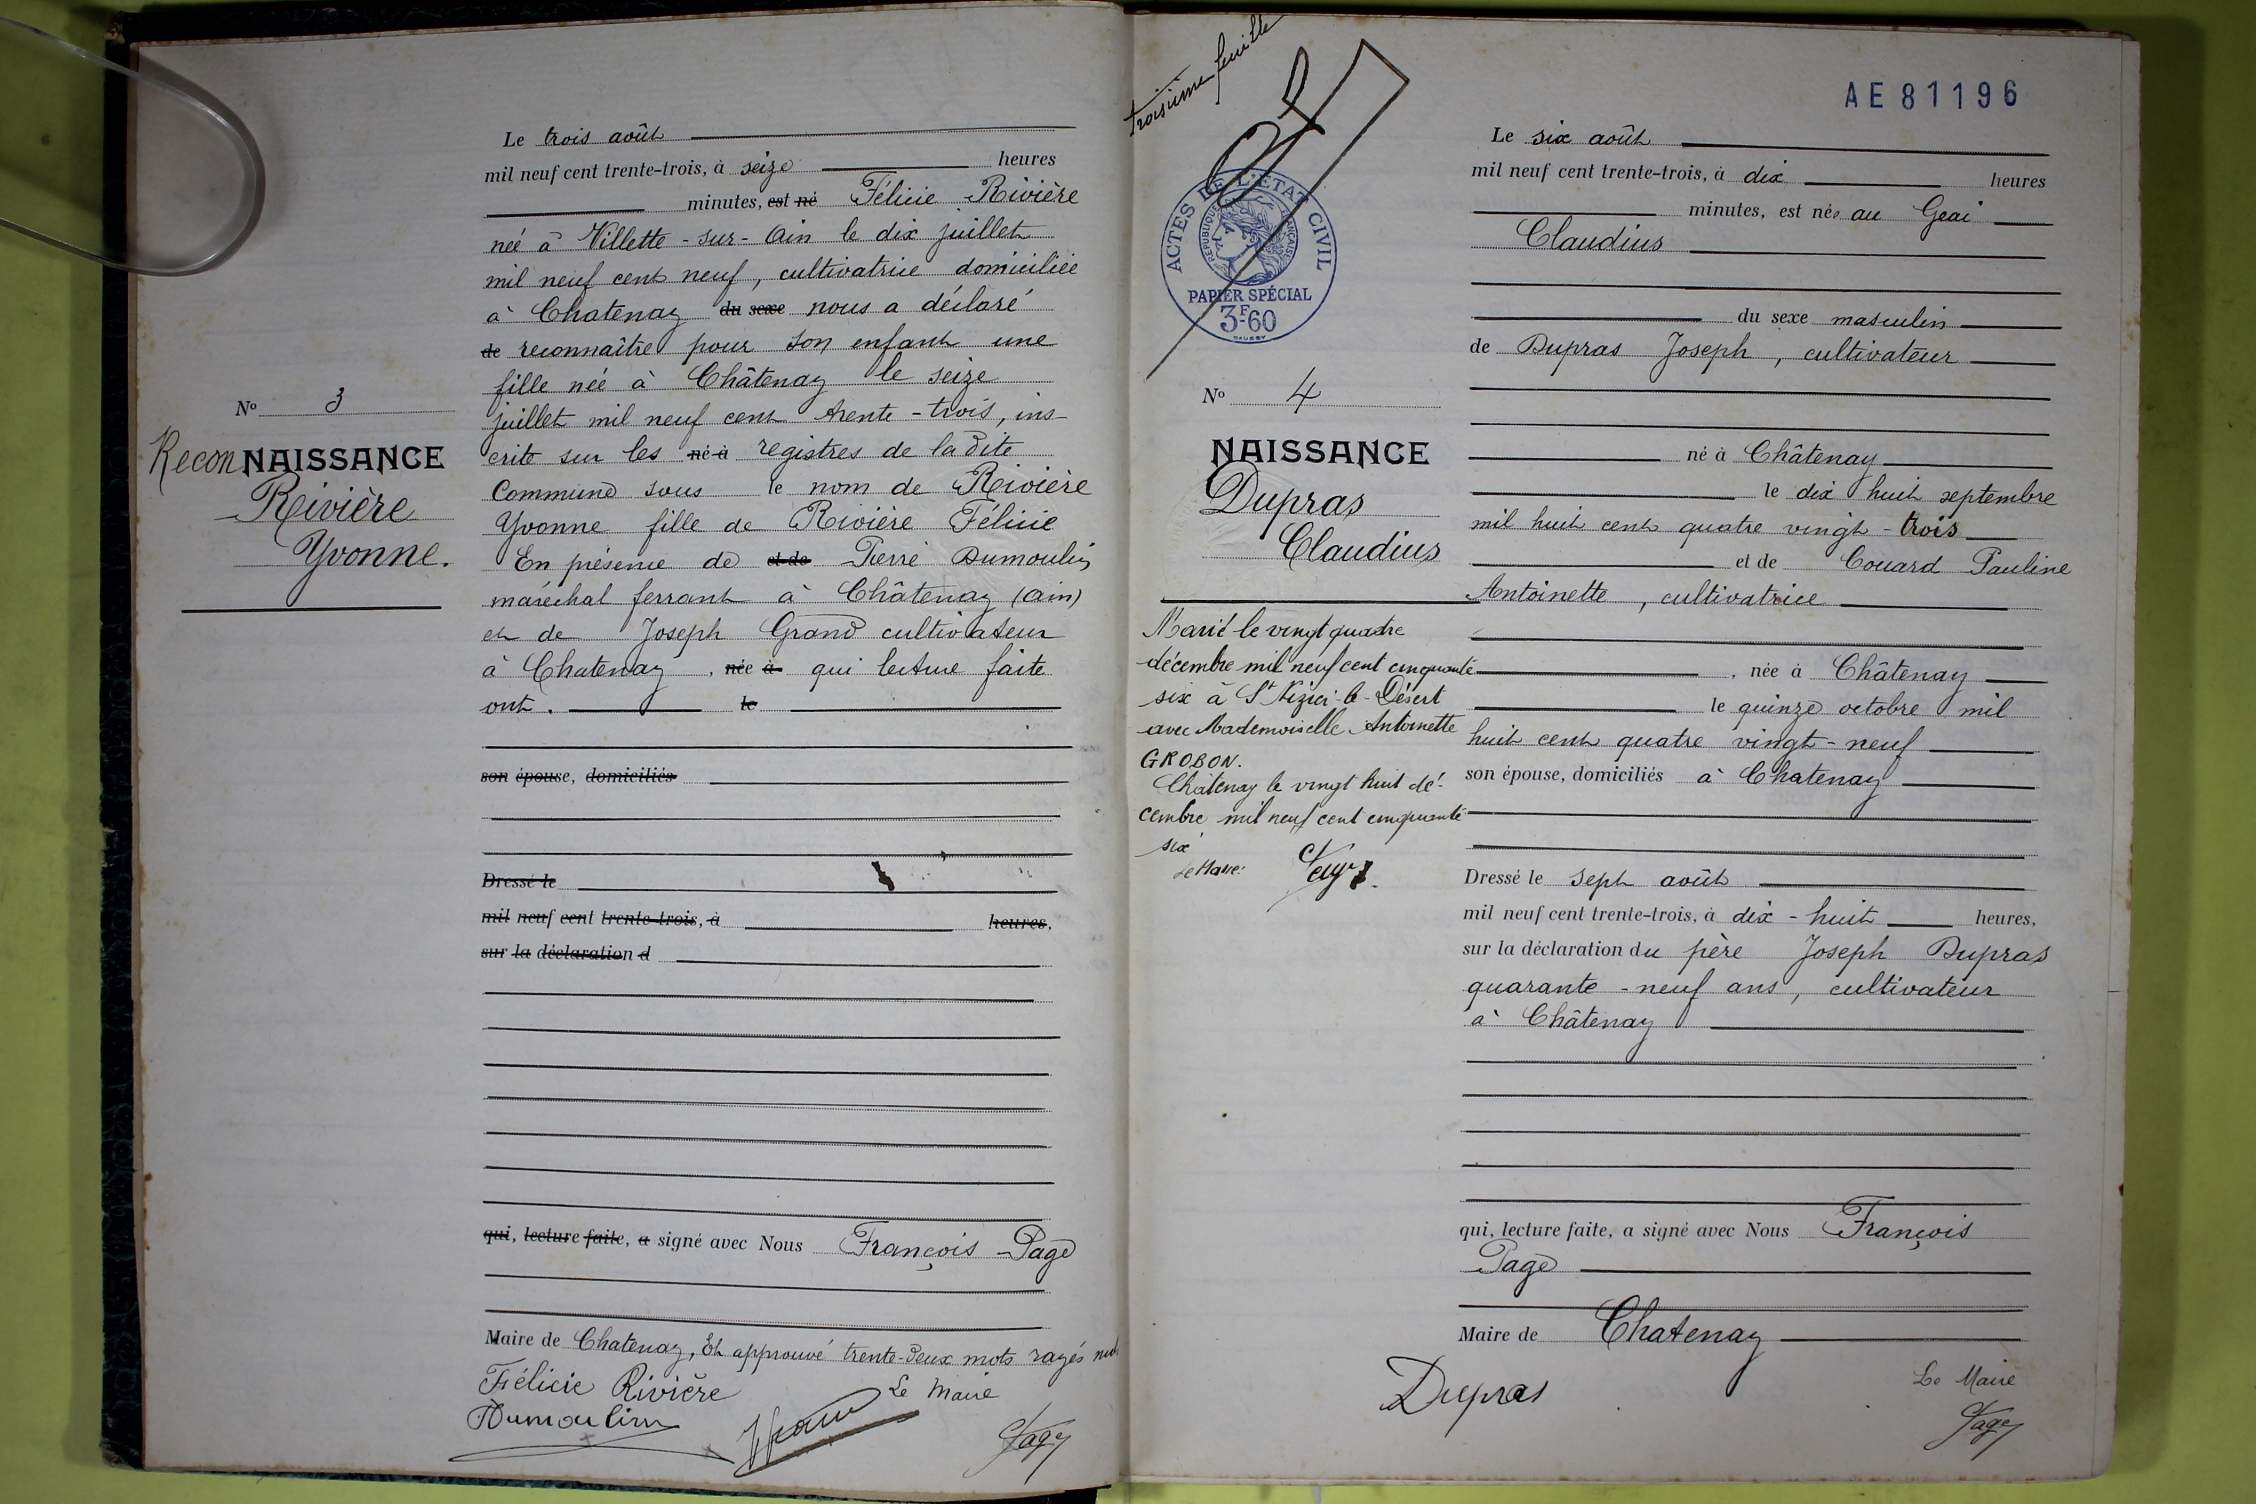 Le trois août
mil neuf cent trente-trois, à seize heures
minutes, est né Félicie Rivière
née à Villette-sur-Ain le dix juillet
mil neuf cent neuf, cultivatrice domiciliée
à Chatenay du sexe nous a déclaré
de reconnaître pour son enfant une
fille née à Châtenay le seize
juillet mil neuf cent trente-trois, ins-
crite sur les né à registres de la dite
Commune sous le nom de Rivière
Yvonne fille de Rivière Félicie
En présence de et de Pierre Dumoulin
maréchal ferrant à Châtenay (Ain)
et de Joseph Grand cultivateur
à Chatenay, née à qui lecture faite
ont. le
son épouse, domiciliés
Dressé le
mil neuf cent trente-trois, à heures,
sur la déclaration d
qui, lecture faite, a signé avec Nous François Page
Maire de Chatenay, Et approuvé trente-deux mots rayés nuls
Félicie Rivière
Le Maire
Dumoulin
Page
N° 3
ReconNAISSANCE
Rivière
Yvonne.
troisième feuille
ACTES DE L'ÉTAT CIVIL
RÉPUBLIQUE FRANÇAISE
PAPIER SPÉCIAL
3F.60
N° 4
NAISSANCE
Dupras
Claudius
Marié le vingt quatre
décembre mil neuf cent cinquante
six à St Nizier-le-Désert
avec Mademoiselle Antoinette
GROBON.
Châtenay le vingt huit dé-
cembre mil neuf cent cinquante
six
Le Maire:
AE 81196
Le six août
mil neuf cent trente-trois, à dix heures
minutes, est né au Geai
Claudius
du sexe masculin
de Dupras Joseph, cultivateur
né à Châtenay
le dix huit septembre
mil huit cent quatre vingt-trois
et de Couard Pauline
Antoinette, cultivatrice
, née à Châtenay
le quinze octobre mil
huit cent quatre vingt-neuf
son épouse, domiciliés à Chatenay
Dressé le sept août
mil neuf cent trente-trois, à dix-huit heures,
sur la déclaration du père Joseph Dupras
quarante-neuf ans, cultivateur
à Châtenay
qui, lecture faite, a signé avec Nous François
Page
Maire de Chatenay
Dupras
Le Maire
Page